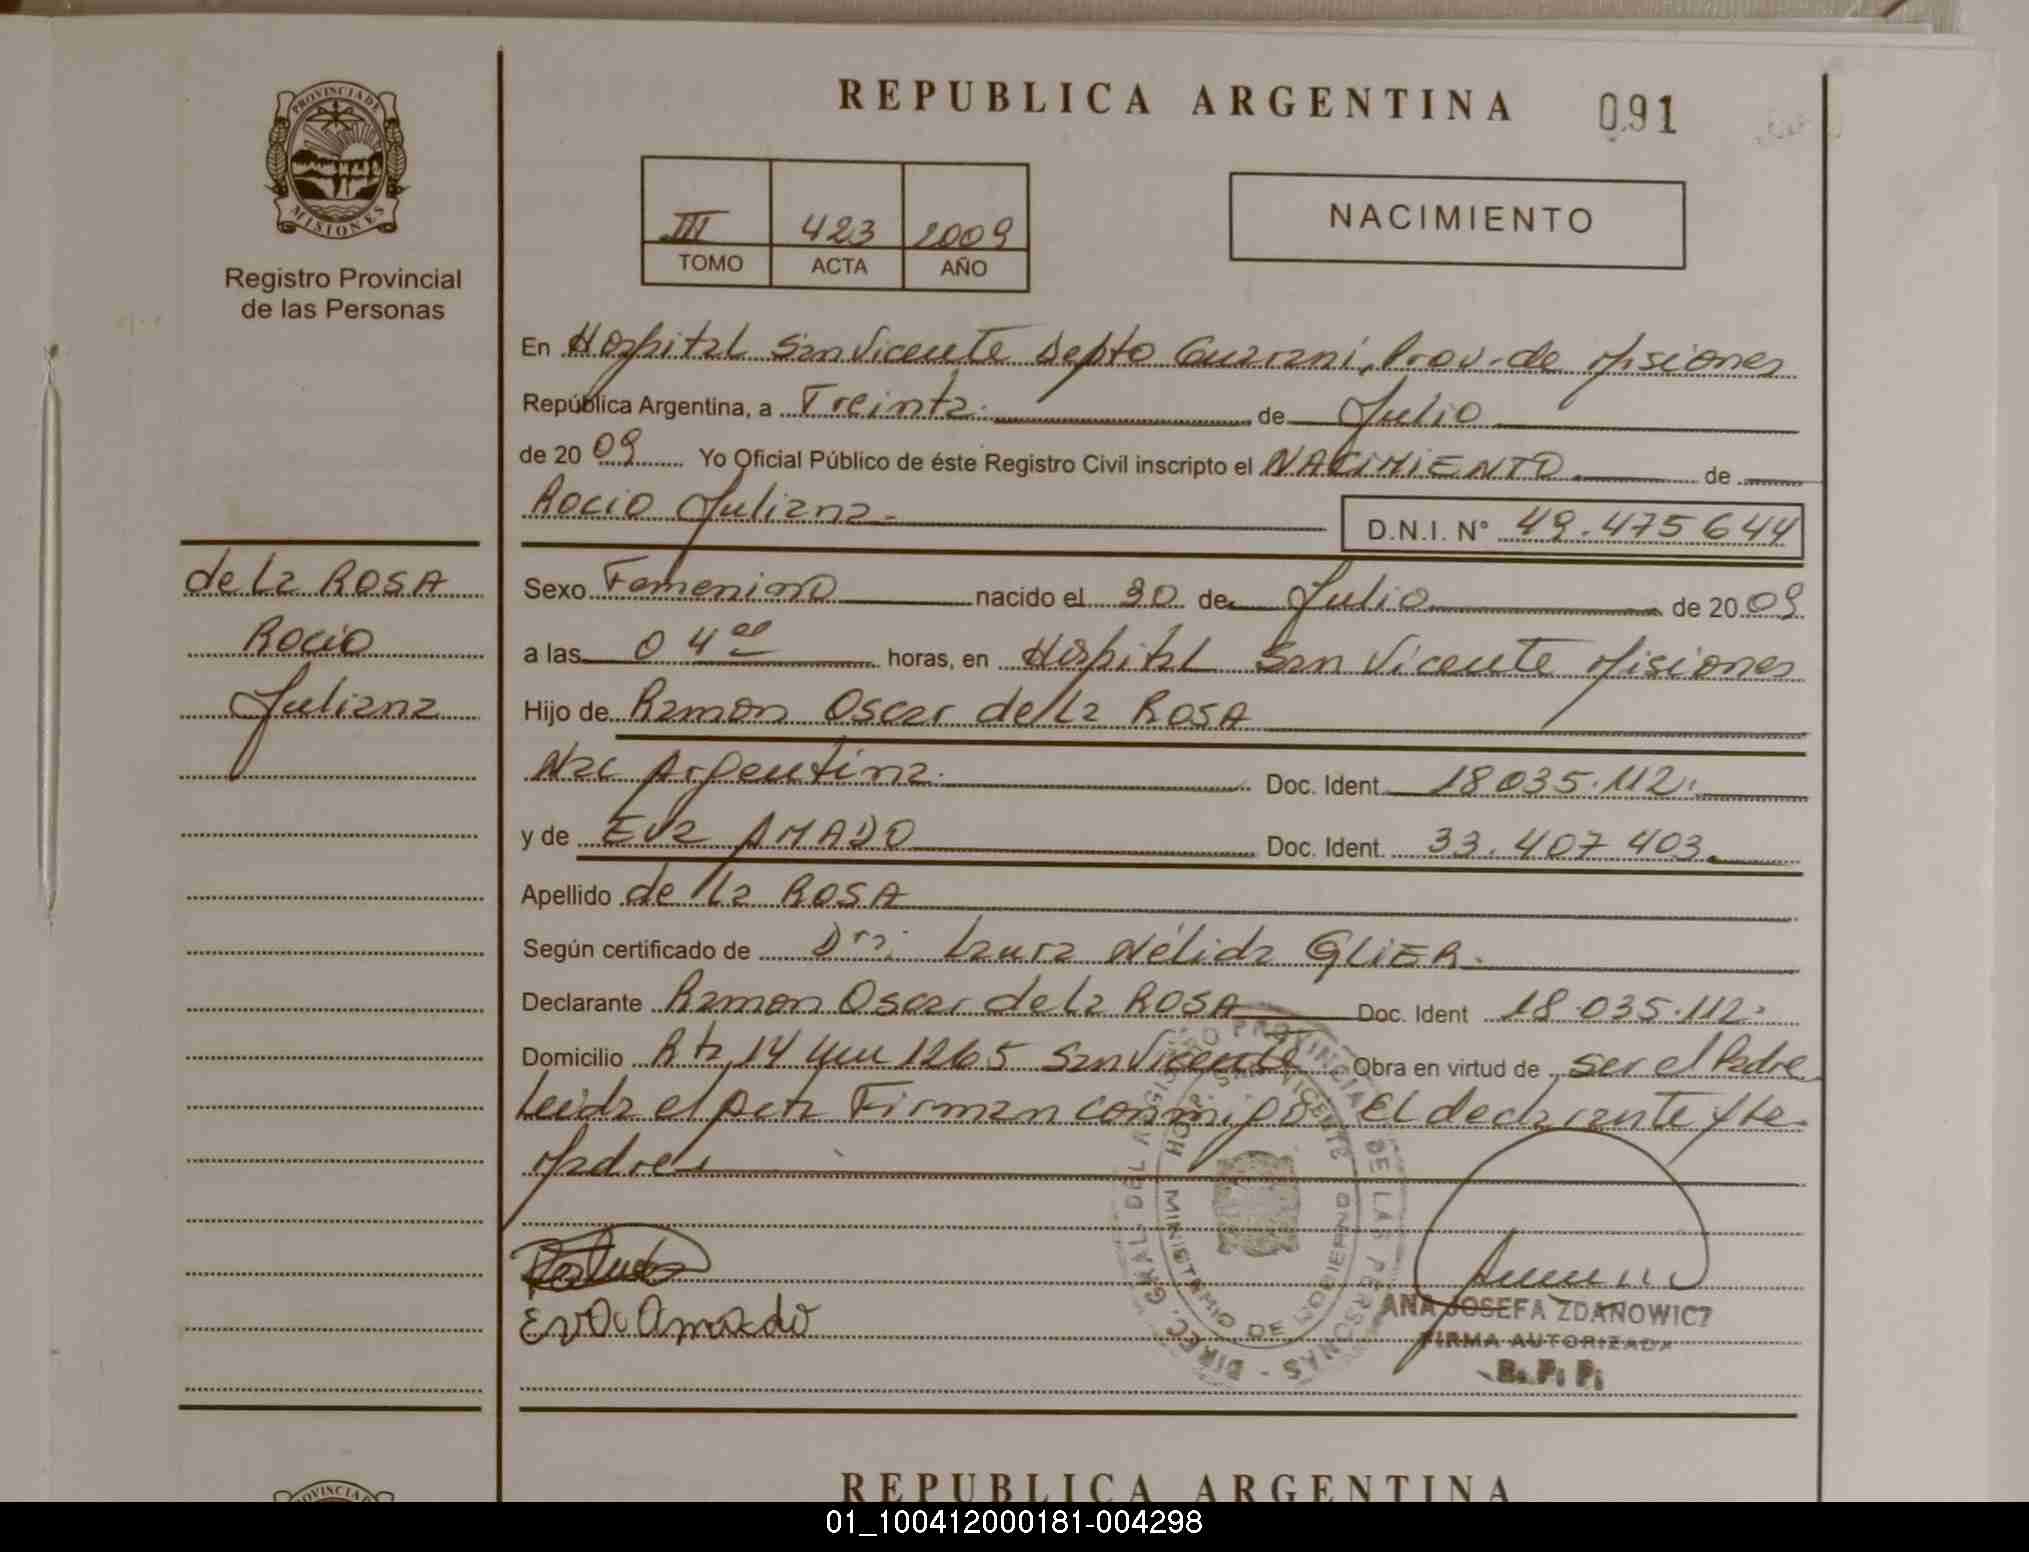 REPUBLICA ARGENTINA 091
PROVINCIA DE
MISIONES
Registro Provincial
de las Personas
III 423 2009
TOMO ACTA AÑO
NACIMIENTO
En Hospital San Vicente Depto Guarani, Prov. de Misiones
República Argentina, a Treinta. de Julio
de 2009 Yo Oficial Público de éste Registro Civil inscripto el NACIMIENTO de
Rocio Juliana.
D.N.I. N° 49.475644
de la ROSA
Rocio
Juliana
Sexo Femenino nacido el 30 de Julio de 2009
a las 04 00 horas, en Hospital San Vicente Misiones
Hijo de Ramon Oscar de la ROSA
Nac Argentina. Doc. Ident. 18035.112.
y de Eva AMADO Doc. Ident. 33.407 403.
Apellido de la ROSA
Según certificado de Dra. Laura Nélida GLIER.
Declarante Ramon Oscar de la ROSA Doc. Ident 18.035.112.
Domicilio Rta 14 Km 1265 San Vicente Obra en virtud de ser el Padre
Leida el Acta Firman conmigo el declarante y la
Madre
DIREC. GRAL. DEL REGISTRO PROVINCIAL DE LAS PERSONAS
HOSP. SAN VICENTE
MINISTERIO DE GOBIERNO
Eva Amado
ANA JOSEFA ZDANOWICZ
FIRMA AUTORIZADA
R. P. P.
PROVINCIA
REPUBLICA ARGENTINA
01_100412000181-004298